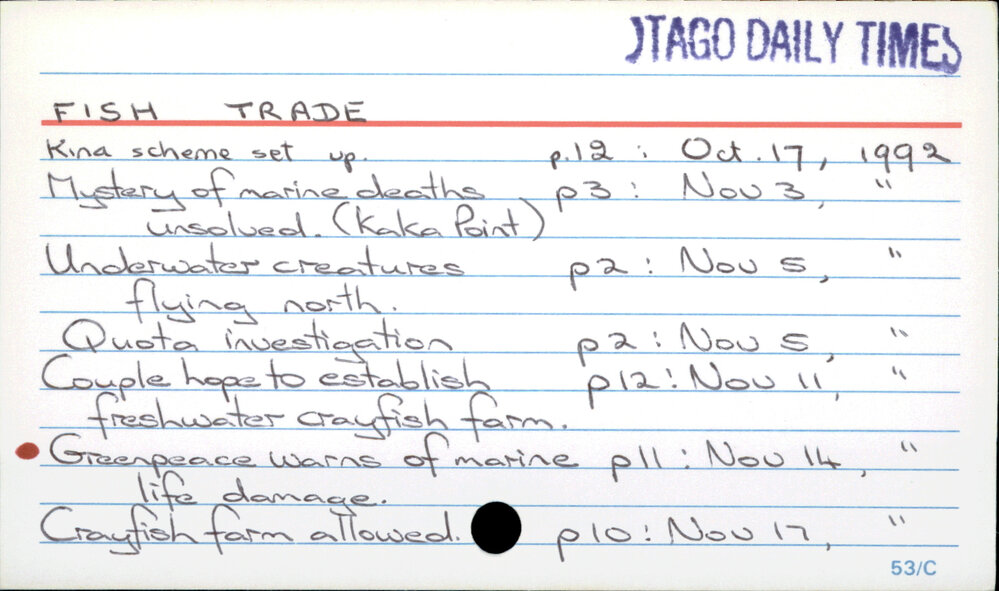 OTAGO DAILY TIMES
FISH TRADE
Kina scheme set up. p.12 : Oct. 17, 1992
Mystery of marine deaths p3 : Nov 3, "
unsolved. (Kaka Point)
Underwater creatures p2 : Nov 5, "
flying north.
Quota investigation p2 : Nov 5, "
Couple hope to establish p12 : Nov 11, "
freshwater crayfish farm.
Greenpeace warns of marine p11 : Nov 14, "
life damage.
Crayfish farm allowed. p10 : Nov 17, "
53/C